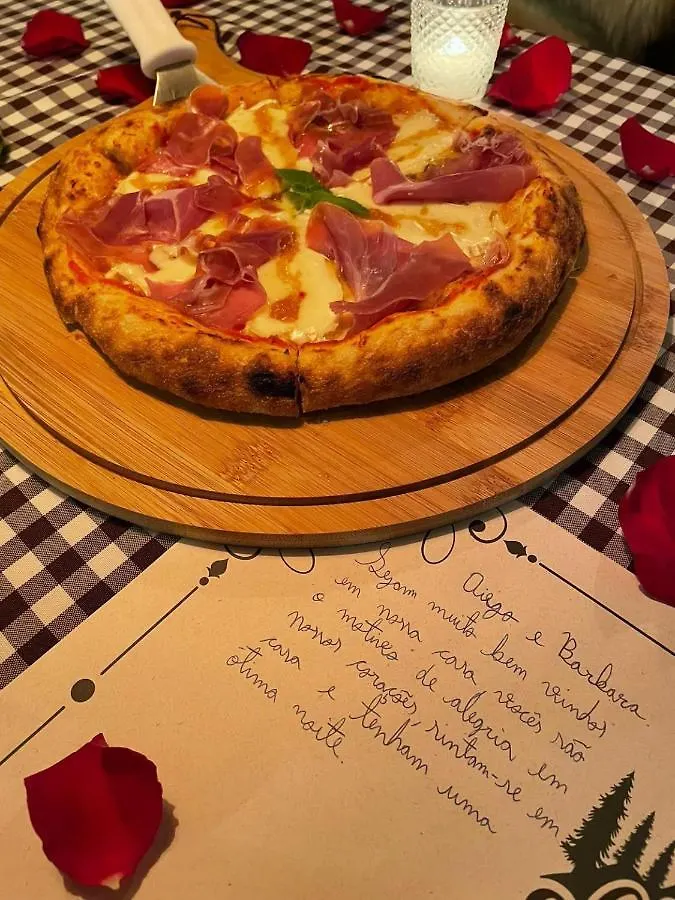 Diego e Barbara
Sejam muito bem vindos
em nossa casa vocês são
o motivo de alegria em
nossos corações, sintam-se em
casa e tenham uma
otima noite.